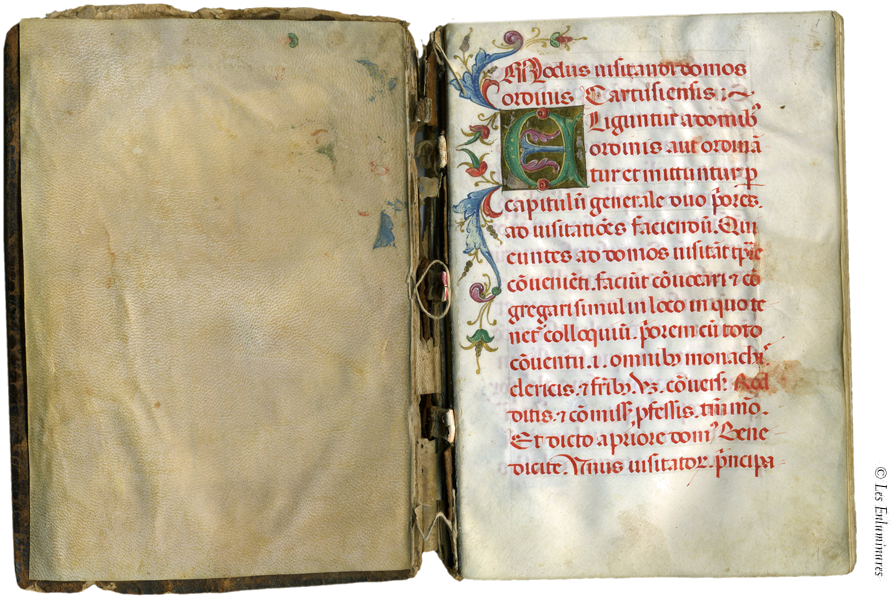 Modus uisitandi domos
ordinis Cartusiensis
ELiguntur a domibꝰ
ordinis aut ordinā
tur et mittuntur p
capitulū generale duo p̄ores
ad uisitatiōes faciendū. Qui
euntes ad domos uisitāt tp̄re
cōueniēti. faciūt cōuocari ⁊ cō
gregari simul in loco in quo te
netʳ colloquiū. p̄orem cū toto
cōuentu .i. omnibꝫ monachꝭ
clericis. ⁊ fr̄ibꝫ cōuersꝭ Red
ditis. ⁊ cōmissꝭ p̄fessis. tm̄mō.
Et dicto a priore domꝰ Bene
dicite. Vnus uisitator. p̄ncipa
© Les Enluminures